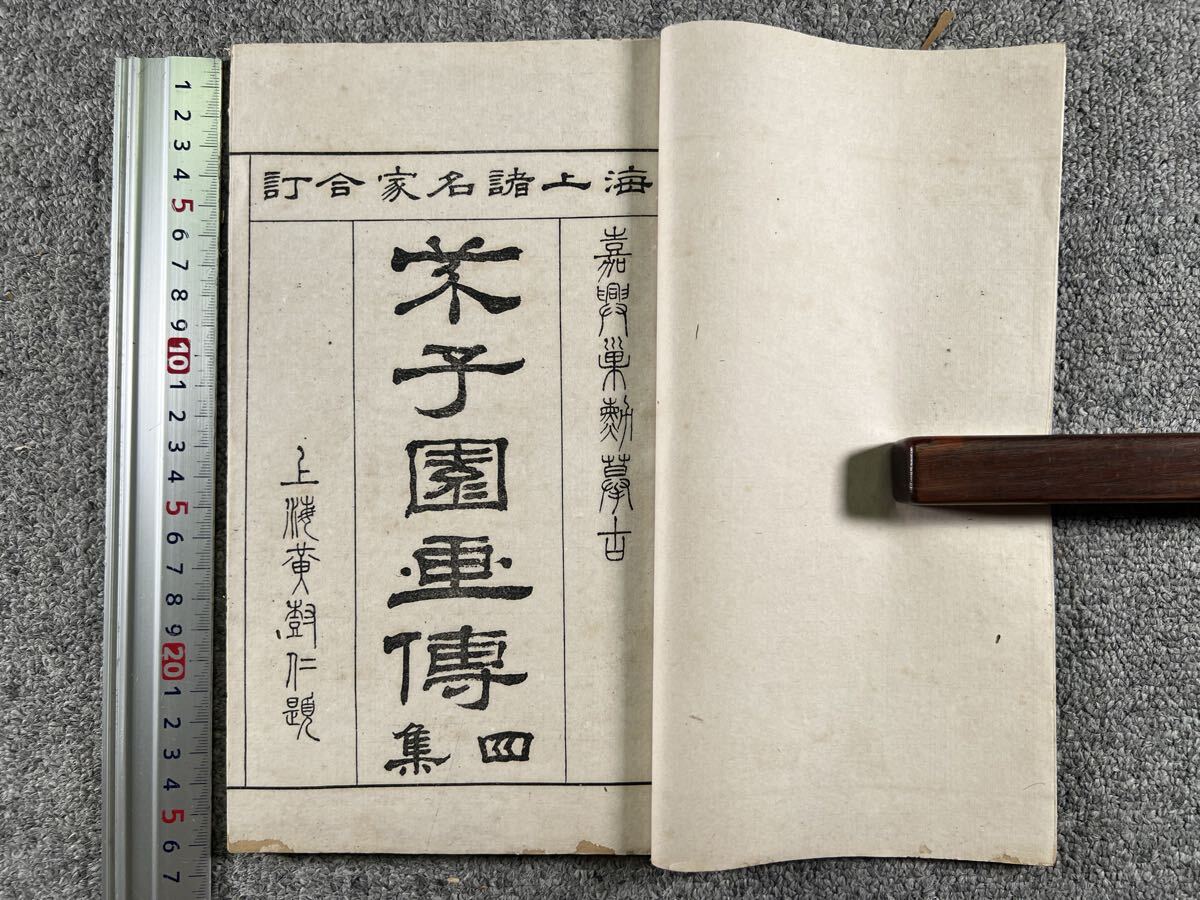 海上諸名家合訂
嘉興巢勳摹古
芥子園畫傳
四集
上海黃尌仁題
1 2 3 4 5 6 7 8 9 10 1 2 3 4 5 6 7 8 9 20 1 2 3 4 5 6 7